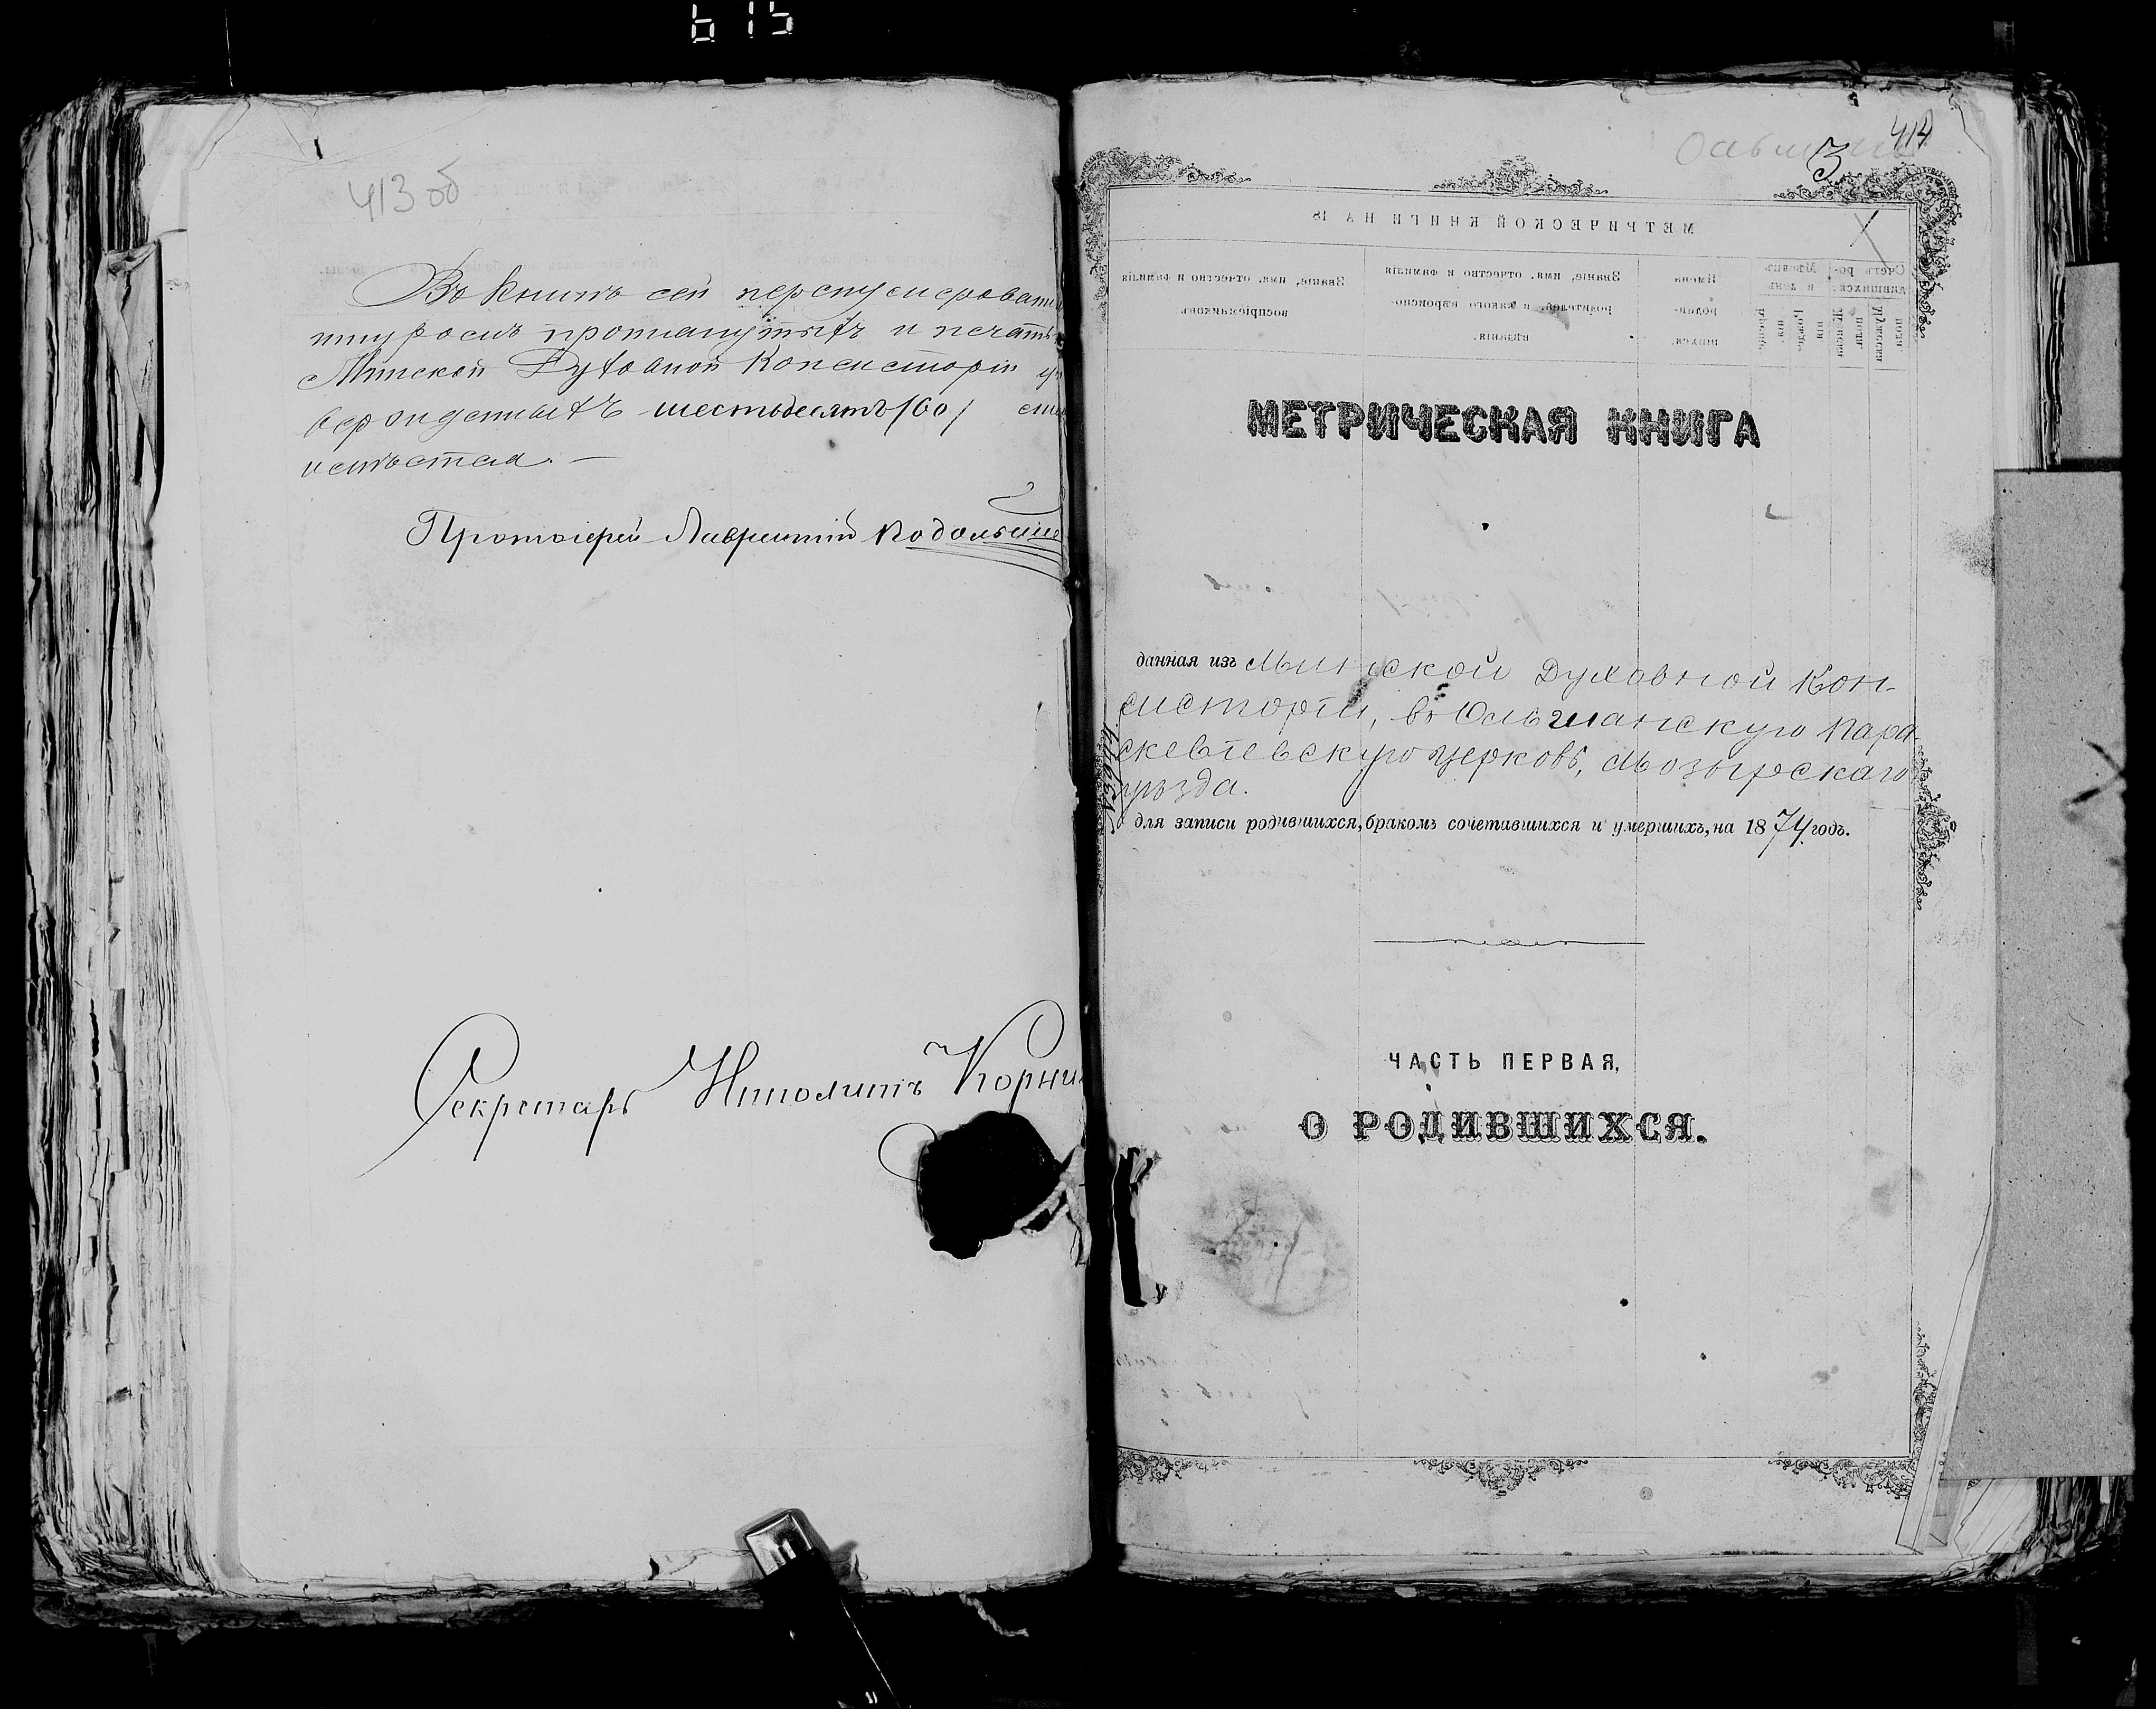 615
413 об
Въ книгѣ сей перенумерованн
шнуромъ протянутыхъ и печатью
Минской Духовной Консисторіи у
вержденныхъ шестьдесятъ /60/
листовъ.
Протоіерей Лаврентій Подольскі
Секретарь Ипполитъ Корни
414
3
МЕТРИЧЕСКОЙ КНИГИ НА 18
Счетъ ро-
дившихся.
Мѣсяцъ
и день
Имена
родив-
шихся.
Званіе, имя, отчество и фамилія
родителей, и какого вѣроиспо-
вѣданія.
Званіе, имя, отчество и фамилія
воспріемниковъ.
МЕТРИЧЕСКАЯ КНИГА
данная изъ Минской Духовной Кон-
систоріи, въ Ольманскую Пара-
скевіевскую церковь, Мозырскаго
уѣзда.
для записи родившихся, бракомъ сочетавшихся и умершихъ, на 1874 годъ.
ЧАСТЬ ПЕРВАЯ,
О РОДИВШИХСЯ.